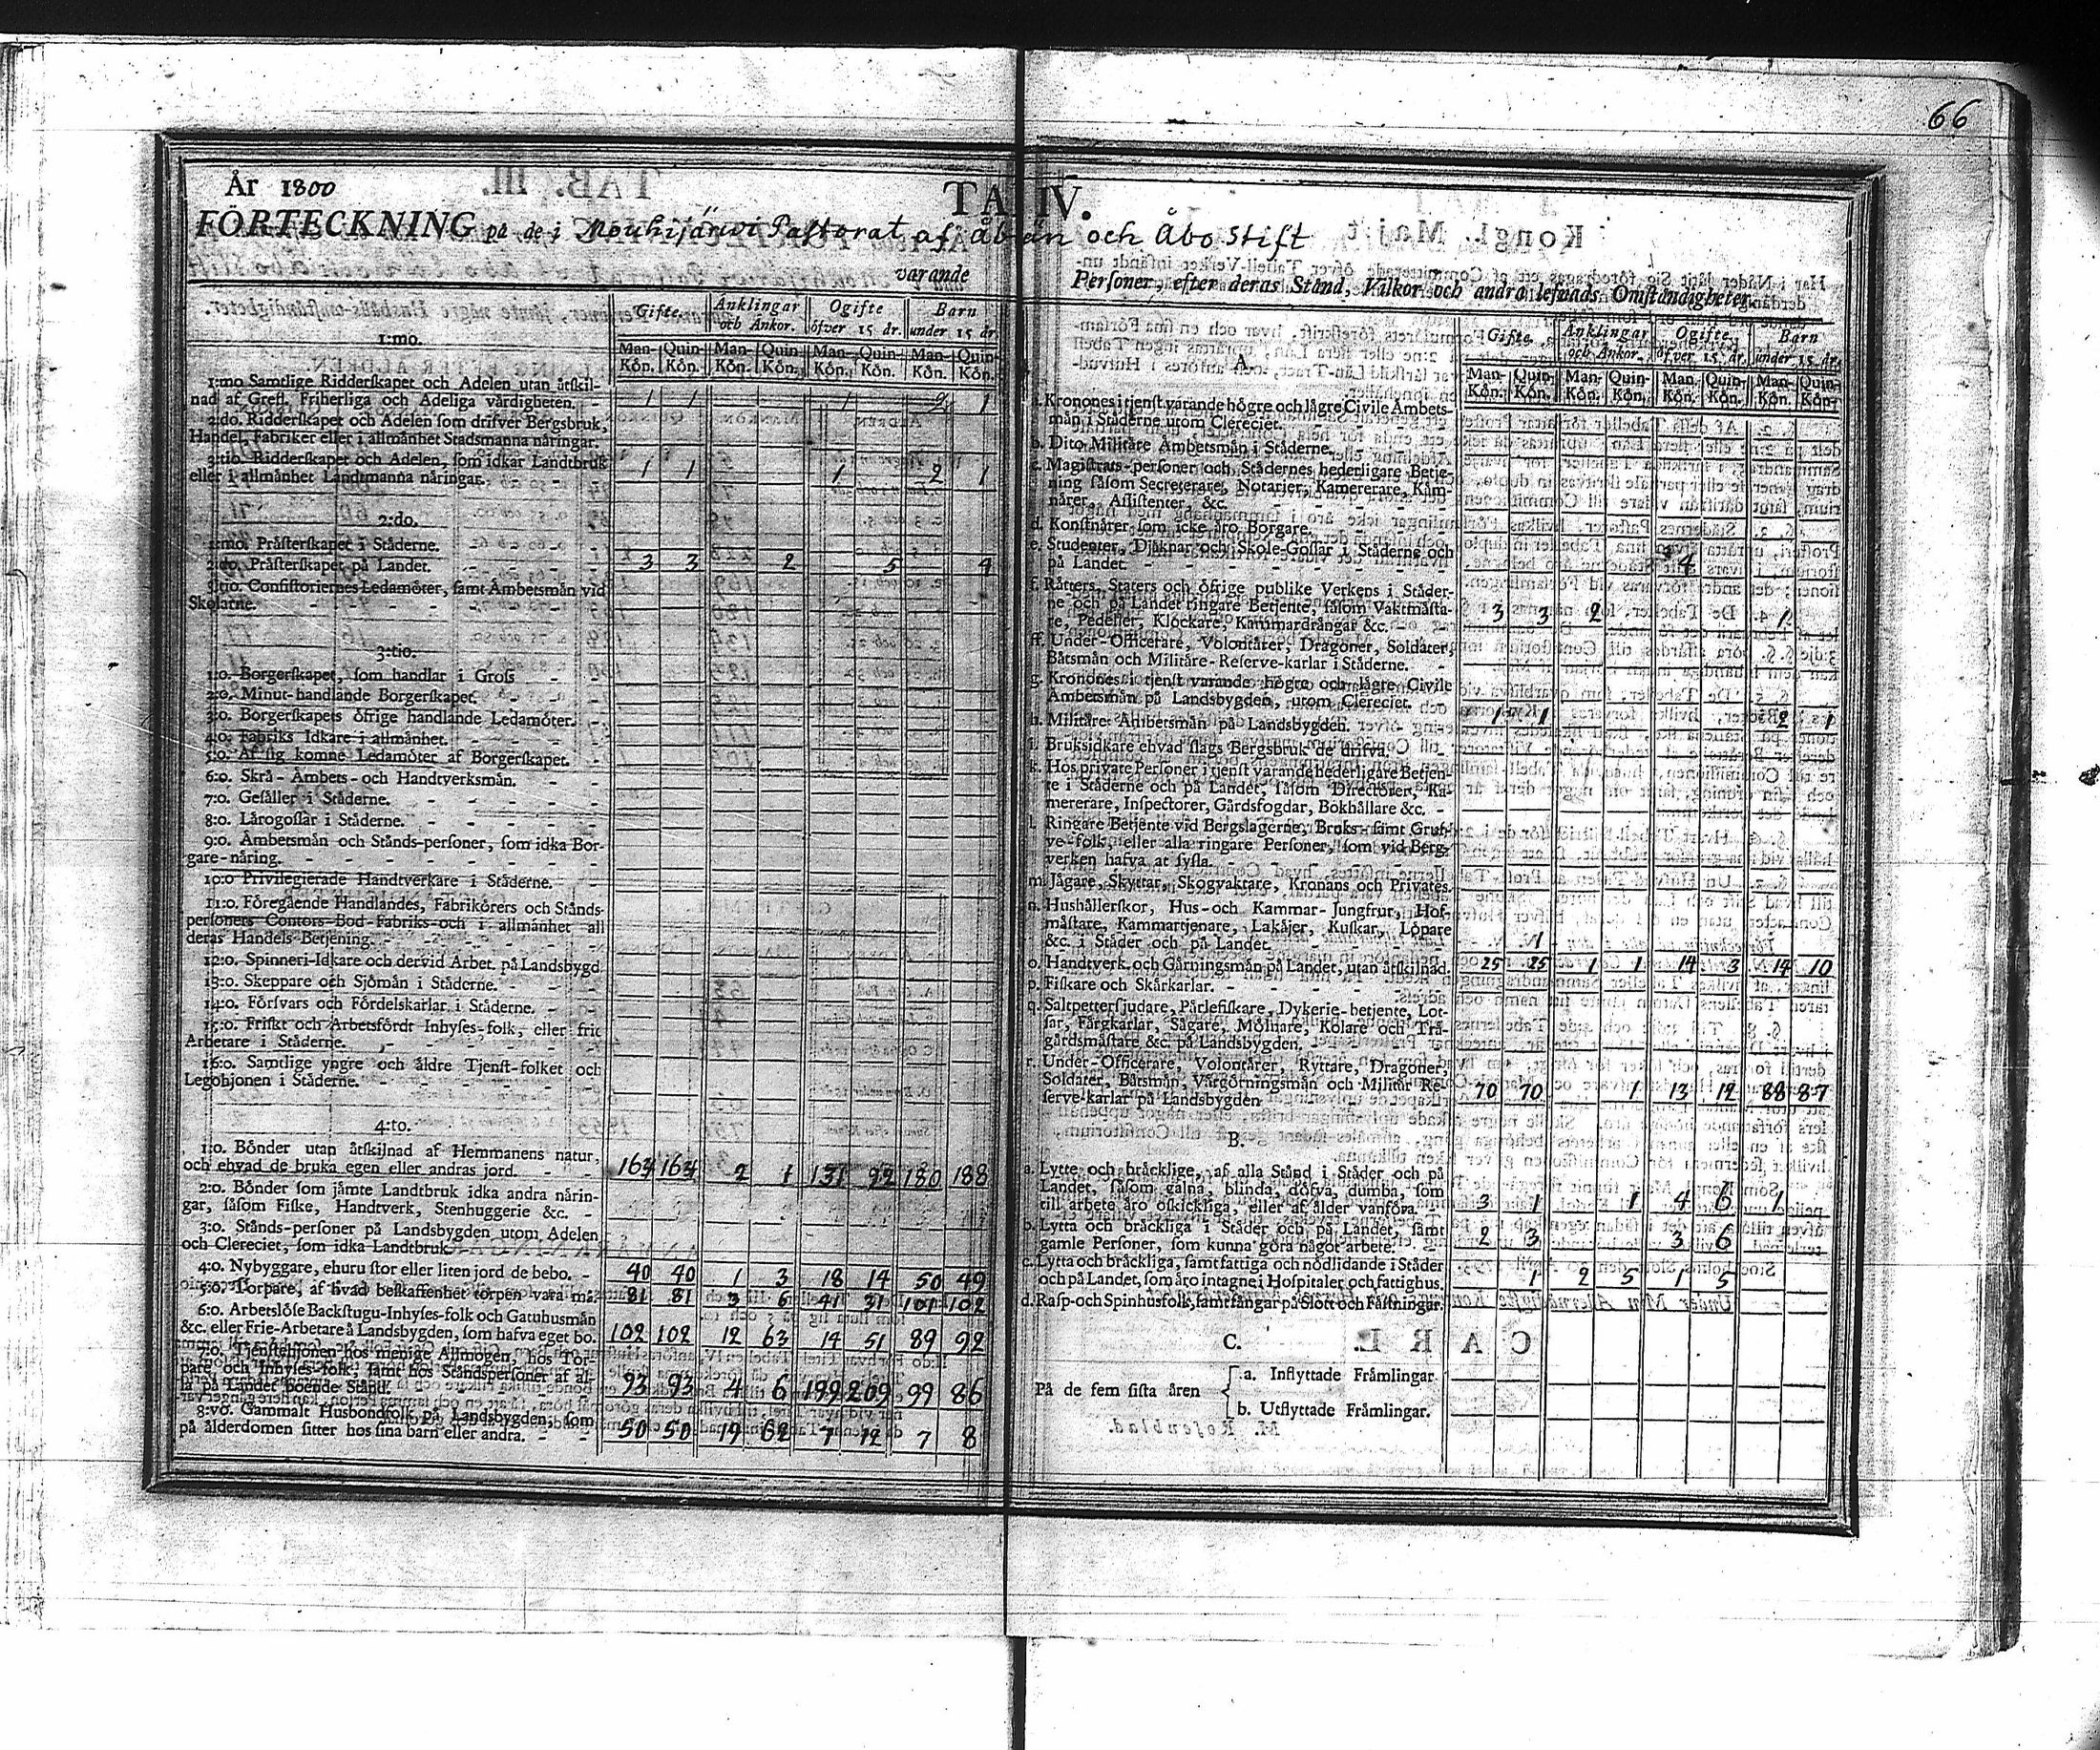 66
År 1800
TAB. IV.
FÖRTECKNING på de i Mouhijärwi Pastorat af Åbo Län och Åbo Stift
varande
Personer, efter deras Stånd, Vilkor och andra lefnads Omständigheter.
Gifte. Änklingar och Änkor. Ogifte öfver 15 år. Barn under 15 år.
Man-Kön. Quin-Kön. Man-Kön. Quin-Kön. Man-Kön. Quin-Kön. Man-Kön. Quin-Kön.
1:mo.
1:mo Samtlige Ridderskapet och Adelen utan åtskil-
nad af Grefl. Friherliga och Adeliga värdigheten. - 1 1 1 2 1
2:do. Ridderskapet och Adelen som drifver Bergsbruk,
Handel, Fabriker eller i allmänhet Stadsmanna näringar.
3:tio. Ridderskapet och Adelen, som idkar Landtbruk 1 1 1 2 1
eller i allmänhet Landtmanna näringar.
2:do.
1:mo. Prästerskapet i Städerne.
2:do. Prästerskapet på Landet. 3 3 2 5 4
3:tio. Consistoriernes Ledamöter, samt Ämbetsmän vid
Skolarne.
3:tio.
1:o. Borgerskapet, som handlar i Gross
2:o. Minut-handlande Borgerskapet.
3:o. Borgerskapets öfrige handlande Ledamöter.
4:o. Fabriks Idkare i allmänhet.
5:o. Af sig komne Ledamöter af Borgerskapet.
6:o. Skrå-Ämbets-och Handtverksmän.
7:o. Gesäller i Städerne.
8:o. Lärogossar i Städerne.
9:o. Ämbetsmän och Stånds-personer, som idka Bor-
gare-näring.
10:o Privilegierade Handtverkare i Städerne.
11:o. Föregående Handlandes, Fabrikörers och Stånds-
personers Contors-Bod-Fabriks-och i allmänhet all
deras Handels Betjening.
12:o. Spinneri-Idkare och dervid Arbet. på Landsbygd
13:o. Skeppare och Sjömän i Städerne.
14:o. Försvars och Fördelskarlar i Städerne.
15:o. Friskt och Arbetsfördt Inhyses-folk, eller frie
Arbetare i Städerne.
16:o. Samtlige yngre och äldre Tjenst-folket och
Legohjonen i Städerne.
4:to.
1:o. Bönder utan åtskilnad af Hemmanens natur,
och ehvad de bruka egen eller andras jord. 163 163 2 1 131 92 180 188
2:o. Bönder som jämte Landtbruk idka andra närin-
gar, såsom Fiske, Handtverk, Stenhuggerie &c.
3:o. Stånds-personer på Landsbygden utom Adelen
och Clereciet, som idka Landtbruk
4:o. Nybyggare, ehuru stor eller liten jord de bebo. 40 40 1 3 18 14 50 49
5:o. Torpare, af hvad beskaffenhet torpen vara må. 81 81 3 6 41 31 101 102
6:o. Arbetslöse Backstugu-Inhyses-folk och Gatuhusmän
&c. eller Frie-Arbetare å Landsbygden, som hafva eget bo. 102 102 12 63 14 51 89 92
7:o. Tjenstehjonen hos menige Allmogen, hos Tor-
pare och Inhyses-folk, samt hos Ståndspersoner af al-
la på Landet boende Stånd. 93 93 4 6 199 209 99 86
8:vo. Gammalt Husbondfolk på Landsbygden, som
på ålderdomen sitter hos sina barn eller andra. 50 50 19 62 7 12 7 8
Gifte. Änklingar och Änkor. Ogifte öfver 15 år. Barn under 15 år.
Man-Kön. Quin-Kön. Man-Kön. Quin-Kön. Man-Kön. Quin-Kön. Man-Kön. Quin-Kön.
A.
a. Kronones i tjenst varande högre och lägre Civile Ämbets-
män i Städerne utom Clereciet.
b. Dito Militäre Ämbetsmän i Städerne.
c. Magistrats-personer och Städernes hederligare Betje-
ning såsom Secreterare, Notarier, Kamererare, Käm-
närer, Assistenter, &c.
d. Konstnärer som icke äro Borgare.
e. Studenter, Djäknar och Skole-Gossar i Städerne och
på Landet. 4
f. Rätters, Staters och öfrige publike Verkens i Städer-
ne och på Landet ringare Betjente, såsom Vaktmästa- 3 3 2 1
re, Pedeller, Klockare, Kammardrängar &c.
ff. Under-Officerare, Volontärer, Dragoner, Soldater,
Båtsmän och Militäre-Reserve-karlar i Städerne.
g. Kronones i tjenst varande högre och lägre Civile
Ämbetsmän på Landsbygden, utom Clereciet.
h. Militäre Ämbetsmän på Landsbygden. 1 1 2 1
i. Bruksidkare ehvad slags Bergsbruk de drifva.
k. Hos private Personer i tjenst varande hederligare Betjen-
te i Städerne och på Landet, såsom Directörer, Ka-
mererare, Inspectorer, Gårdsfogdar, Bokhållare &c.
l. Ringare Betjente vid Bergslagerne, Bruks-samt Gruf-
ve-folk, eller alla ringare Personer, som vid Berg-
verken hafva at sysla.
m. Jägare, Skyttar, Skogvaktare, Kronans och Privates.
n. Hushållerskor, Hus-och Kammar-Jungfrur, Hof-
mästare, Kammartjenare, Lakäjer, Kuskar, Löpare
&c. i Städer och på Landet. 1
o. Handtverk. och Gärningsmän på Landet, utan åtskilnad. 25 25 1 1 14 3 14 10
p. Fiskare och Skärkarlar.
q. Saltpettersjudare, Pärlefiskare, Dykerie-betjente, Lot-
sar, Färgkarlar, Sågare, Mölnare, Kolare och Trä-
gårdsmästare &c. på Landsbygden.
r. Under-Officerare, Volontärer, Ryttare, Dragoner,
Soldater, Båtsmän, Vargörningsmän och Militär Re-
serve-karlar på Landsbygden 70 70 1 13 12 88 87
B.
a. Lytte och bräcklige, af alla Stånd i Städer och på
Landet, såsom galna, blinda, döfva, dumba, som
till arbete äro oskickliga, eller af ålder vanföra. 3 1 1 4 6 1
b. Lytta och bräckliga i Städer och på Landet, samt
gamle Personer, som kunna göra något arbete. 2 3 3 6
c. Lytta och bräckliga, samt fattiga och nödlidande i Städer
och på Landet, som äro intagne i Hospitaler och fattighus. 1 2 5 1 5
d. Rasp-och Spinhusfolk, samt fångar på Slott och Fästningar.
C.
På de fem sista åren
a. Inflyttade Främlingar
b. Utflyttade Främlingar.